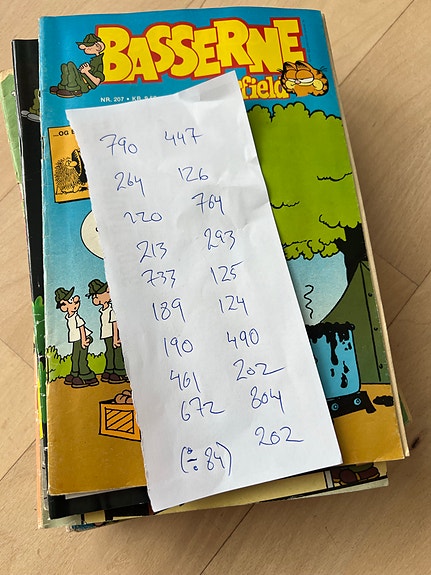 BASSERNE
NR. 207 • KR.
field
...OG
790 447
264 126
220 764
213 293
733 125
189 124
190 490
461 202
672 804
(÷ 84) 202